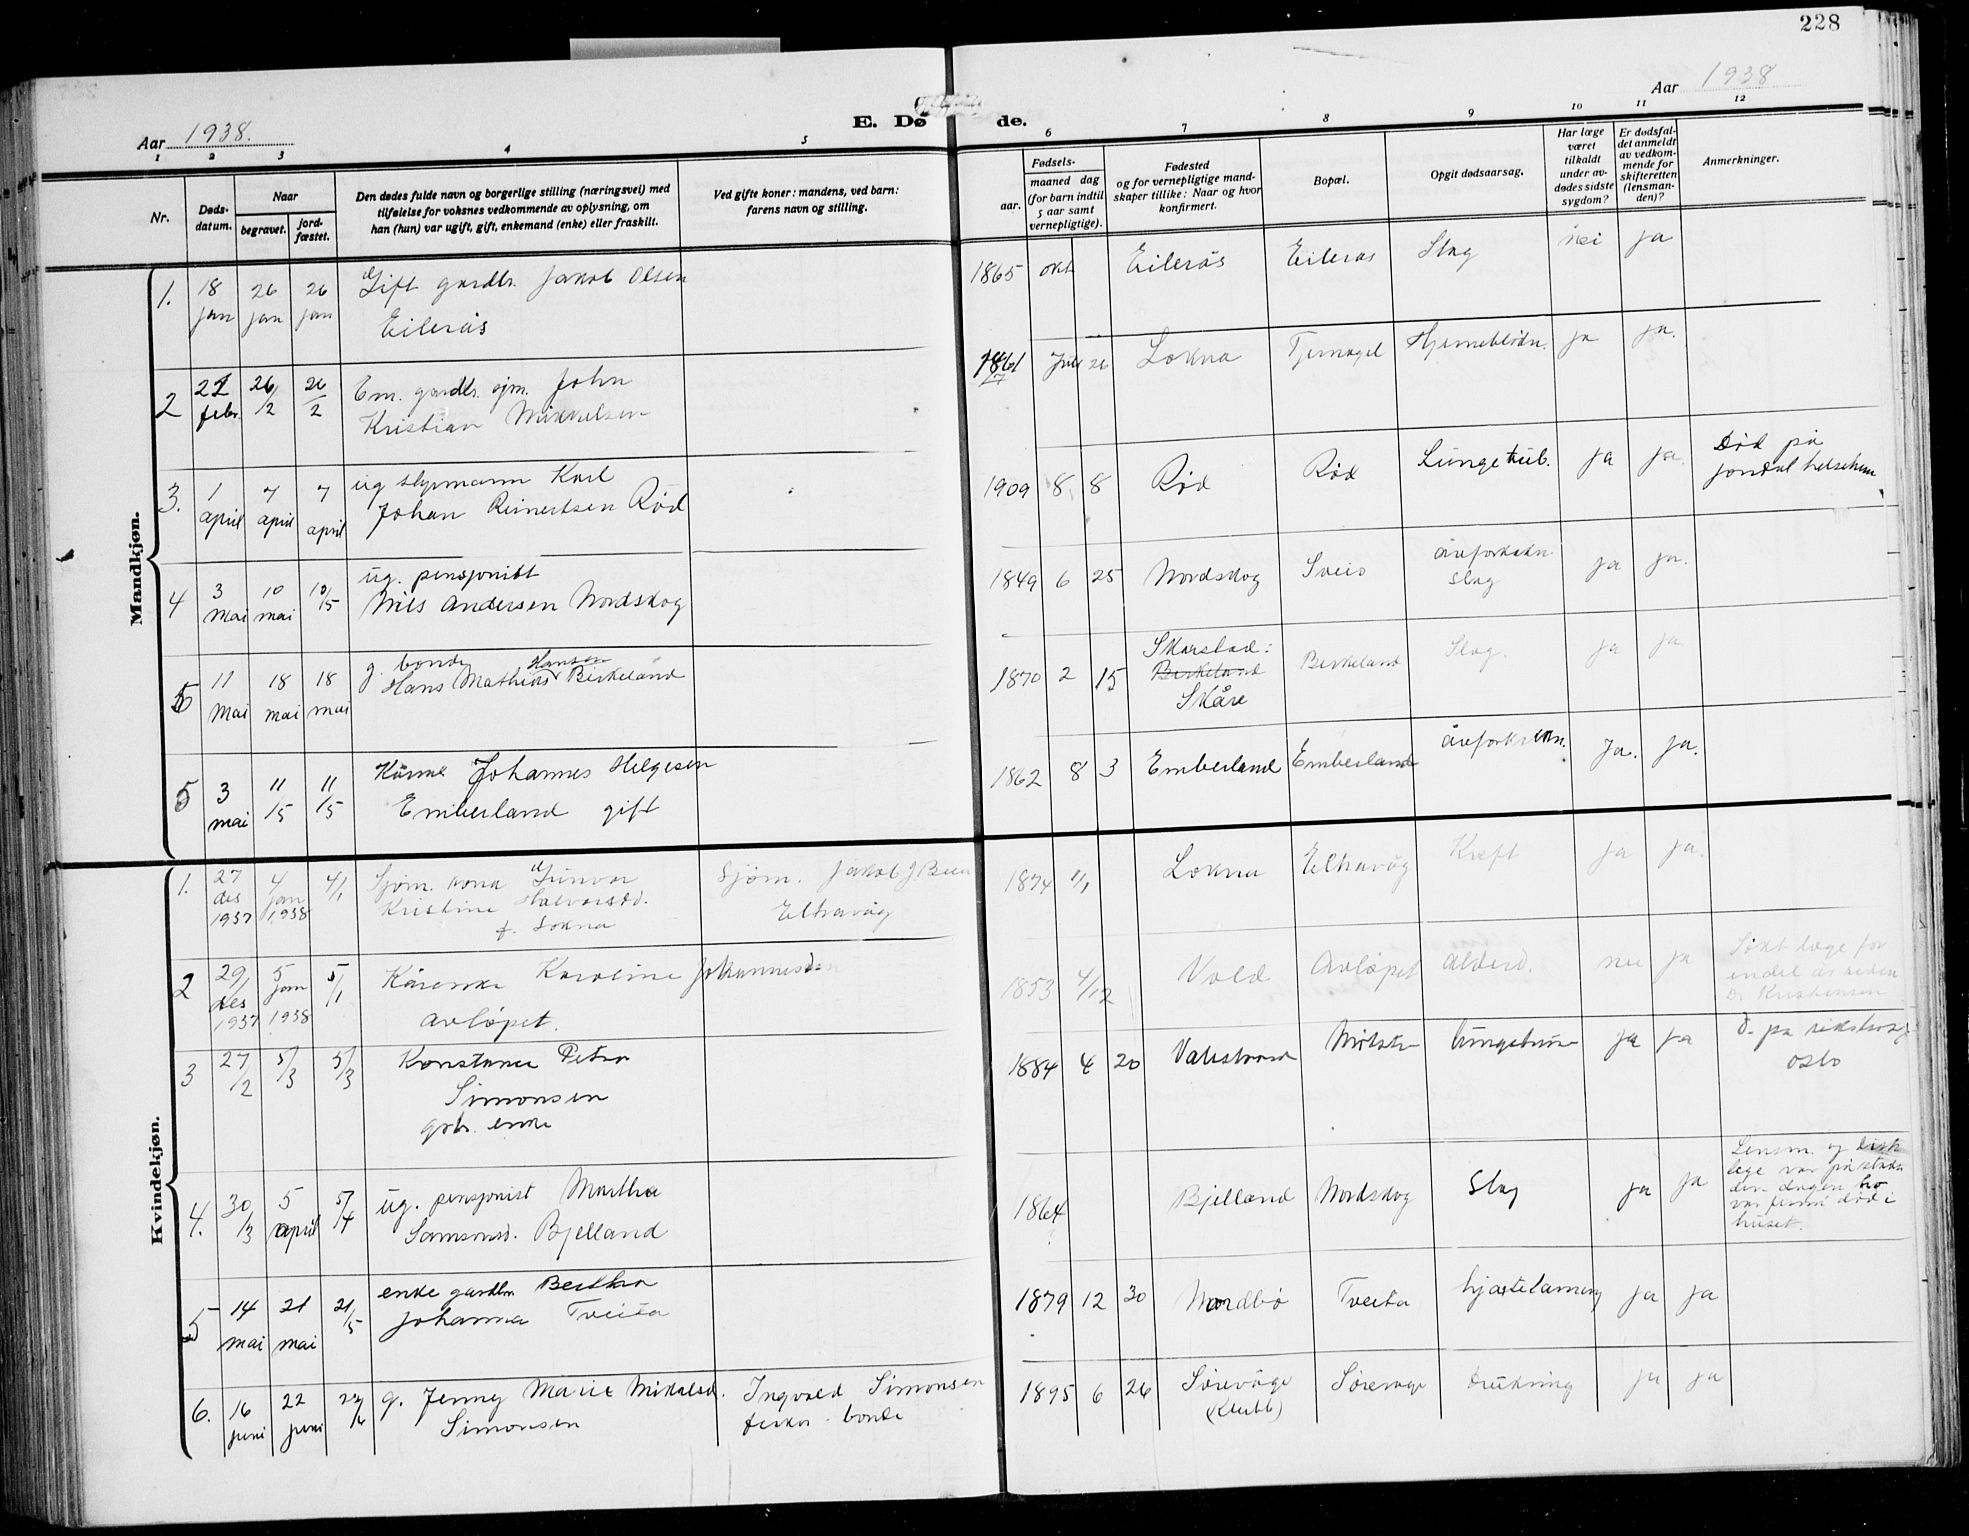 228
Aar 1938.
E. Dø de.
Aar 1938
1 2 3 4 5 6 7 8 9 10 11 12
Nr.
Døds-
datum.
Naar
begravet.
jord-
fæstet.
Den dødes fulde navn og borgerlige stilling (næringsvei) med
tilføielse for voksnes vedkommende av oplysning, om
han (hun) var ugift, gift, enkemand (enke) eller fraskilt.
Ved gifte koner: mandens, ved barn:
farens navn og stilling.
Fødsels-
aar.
maaned dag
(for barn indtil
5 aar samt
vernepligtige).
Fødested
og for vernepligtige mand-
skaper tillike: Naar og hvor
konfirmert.
Bopæl.
Opgit dødsaarsag.
Har læge
været
tilkaldt
under av-
dødes sidste
sygdom?
Er dødsfal-
det anmeldt
av vedkom-
mende for
skifteretten
(lensman-
den)?
Anmerkninger.
Mandkjøn.
1. 18 jan 26 jan 26 jan Gift gardbr. Jakob Olsen
Eilerås
1865 okt Eilerås Eilerås Slag nei ja
2 febr. 26/2 26/2 Em. gardbr. sjm. John
Kristian Mikkelsen
Juli 26 Lokna Tjernagel Hjerneblødn. ja ja.
3. 1 april 7 april 7 april ug styrmann Karl
Johan Reinertsen Rød
1909 8 8 Rød Rød Lungetub. ja ja. Død på
Jondal
4 3 Mai 10 mai 10/5 ug. pensjonist
Nils Andersen Nordskog
1849 6 25 Nordskog Sveio åreforkalkn.
slag ja ja.
5 11 Mai 18 mai 18 mai g. bonde
Hans Mathias Hansen Birkeland
1870 2 15 Skarstad:
Birkeland
Skåre
Birkeland Slag. ja ja
5 3 mai 11/5 11/5 Kårm. Johannes Helgesen
Emberland gift
1862 8 3 Emberland Emberland åreforkalkn. Ja. ja.
Kvindekjøn.
1. 27 des 1937 4 jan 1938 4/1 Sjøm. kona Gunvor
Kristine Halvorsd.
f. Lokna
Sjøm. Jakob J
Eltravåg
1874 1/1 Lokna Eltravåg Kreft ja ja.
2 29/ des 1937 5 jan 1938 5/1 Kårenke Karoline Johannesdon
Avløpet.
1853 4/12 Vold Avløpet alderd. nei ja Søkt læge for
endel år siden
Dr Kristensen
3 27/2 5/3 5/3 Konstanse Petra
Simonsen
gbr. enke
1884 4 20 Valestrand ja ja d. på rikshosp
Oslo
4. 30/3 5 april 5/4 ug. pensjonist Martha
Samsonsd. Bjelland
1864 Bjelland Nordskog Slag ja ja Lensm. og
lege var på staden
den dagen ho
var funni død i
huset.
5 14 mai 21 mai 21/5 enke gardbr. Bertha
Johanna Tveita
1879 12 30 Nordbø Tveita hjartelaming ja ja
6. 16 juni 22 juni g. Jenny Marie Mikalsd.
Simonsen
Ingvald Simonsen
fisker - bonde
1895 6 26 Sørevåge
(Klubb)
Sørevåge drukning ja ja